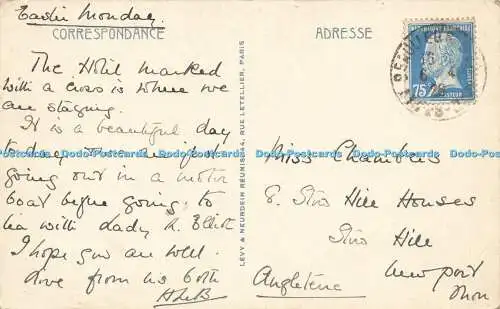 Easter Monday.
CORRESPONDANCE
The Hotel marked
with a cross is where we
are staying.
It is a beautiful day
today. We are just
going out in a motor
boat before going to
tea with Lady R. Elliot
I hope you are well.
Love from us both
HLB
LÉVY & NEURDEIN RÉUNIS, 44, RUE LETELLIER, PARIS
ADRESSE
75c
PASTEUR
Miss Chambers
8. Stow Hill Houses
Stow Hill
Newport
Mon
Angleterre
Dodo-Postcards Dodo-Postcards Dodo-Postcards Dodo-Postcards Dodo-Postcards